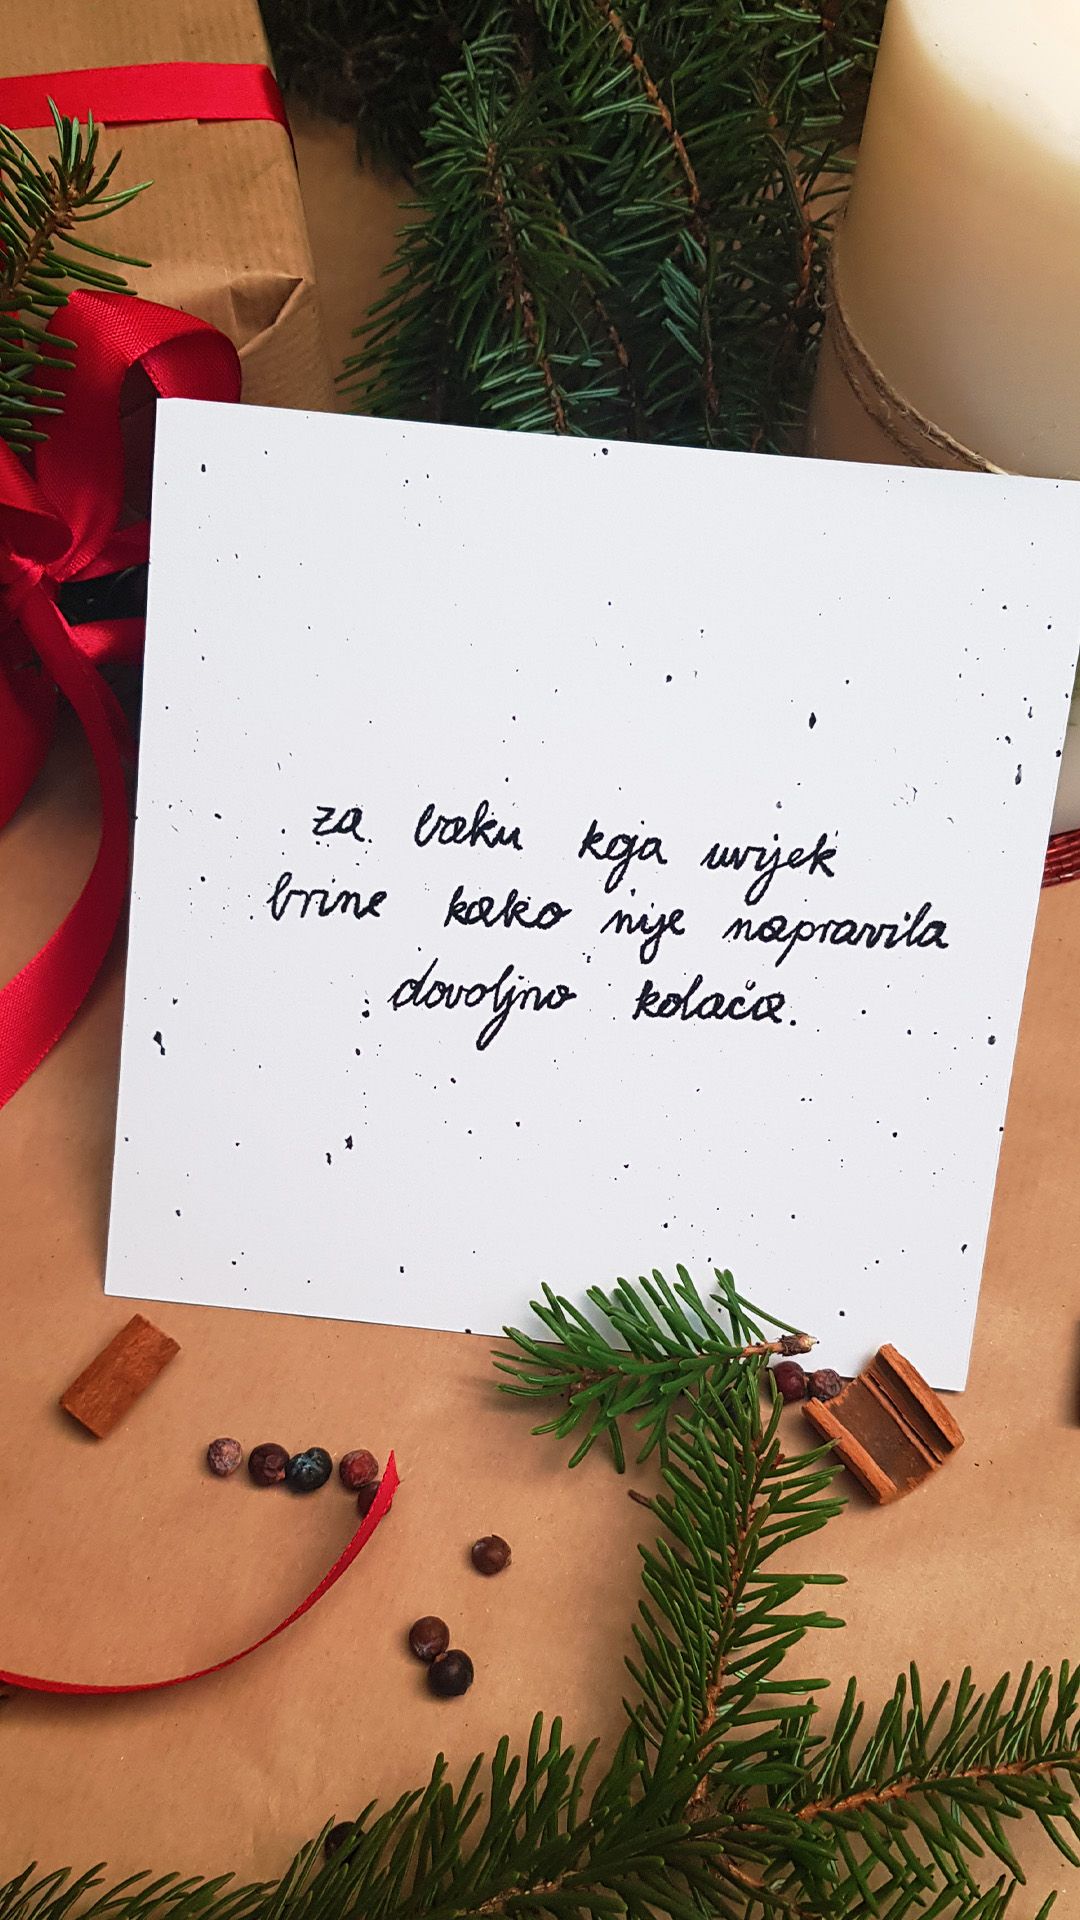 za baku koja uvijek
brine kako nije napravila
dovoljno kolača.